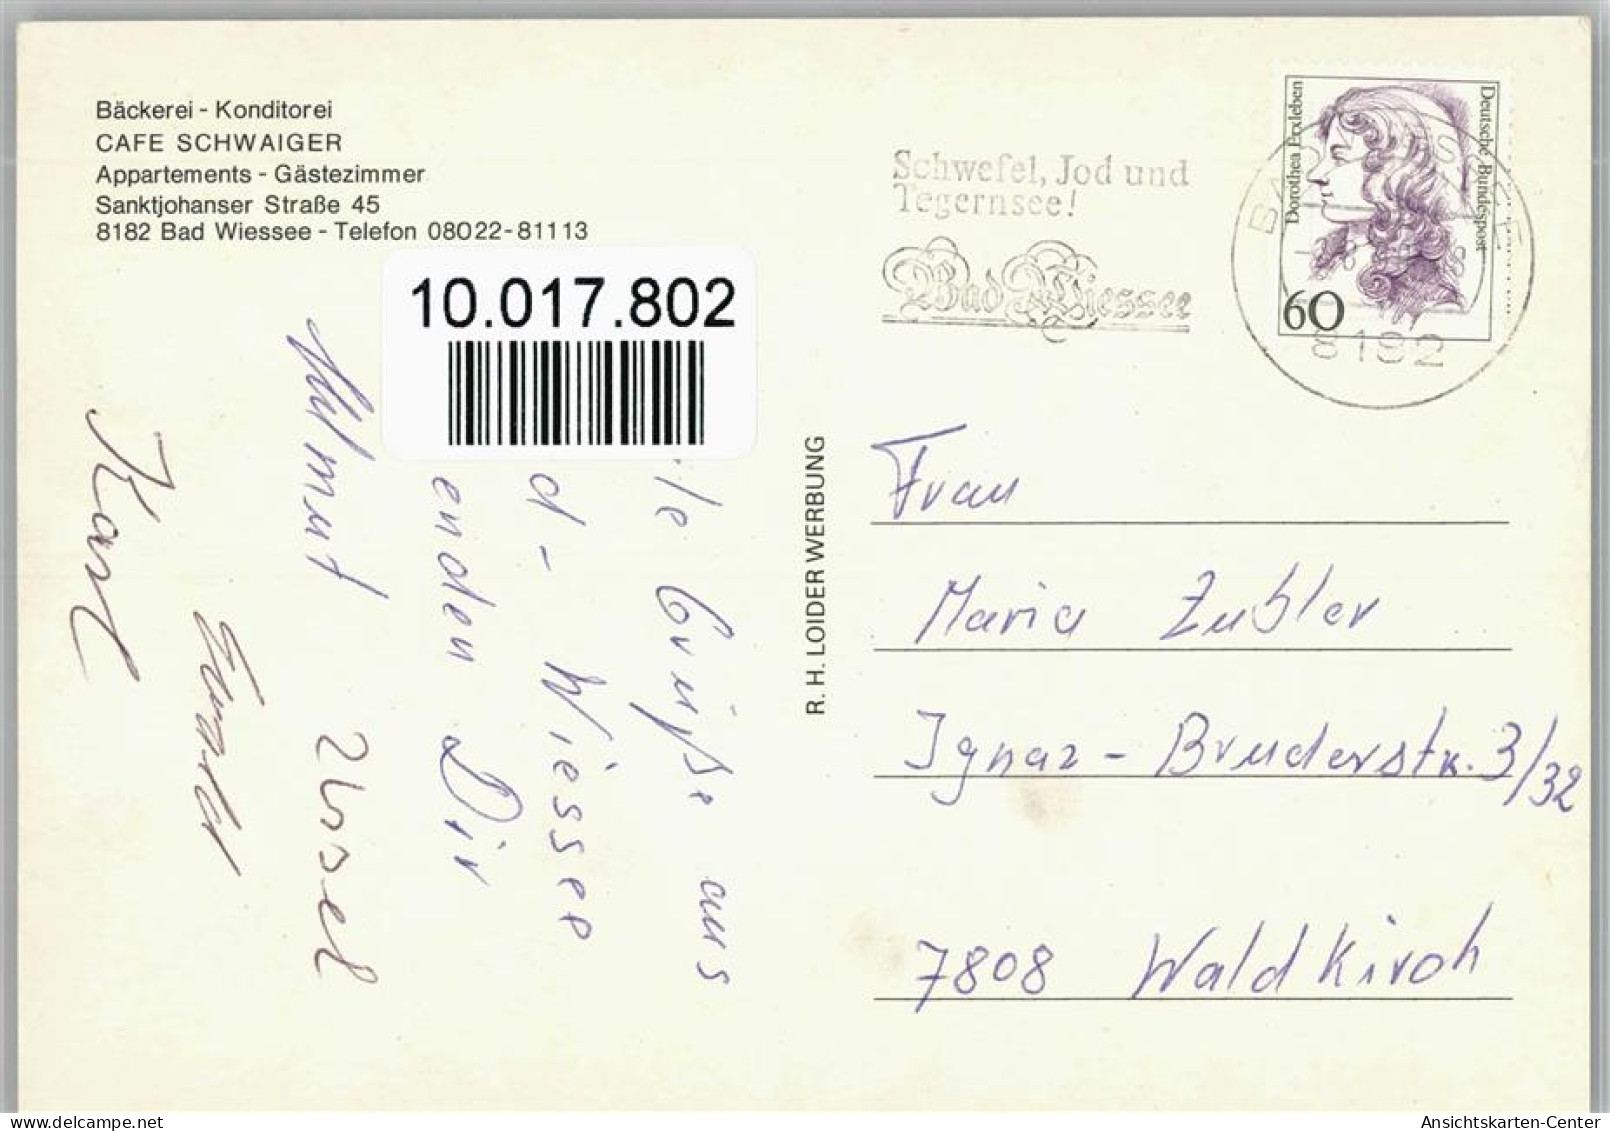 Bäckerei - Konditorei
CAFE SCHWAIGER
Appartements - Gästezimmer
Sanktjohanser Straße 45
8182 Bad Wiessee - Telefon 08022-81113
10.017.802
le Grüße aus
d - Wiessee
enden Dir
Helmut Ursel
Karl
R. H. LOIDER WERBUNG
Schwefel, Jod und
Tegernsee!
Bad Wiessee
8182
Dorothea Erxleben
Deutsche Bundespost
60
Frau
Maria Zubler
Ignaz - Bruderstr. 3/32
7808 Waldkirch
Ansichtskarten-Center